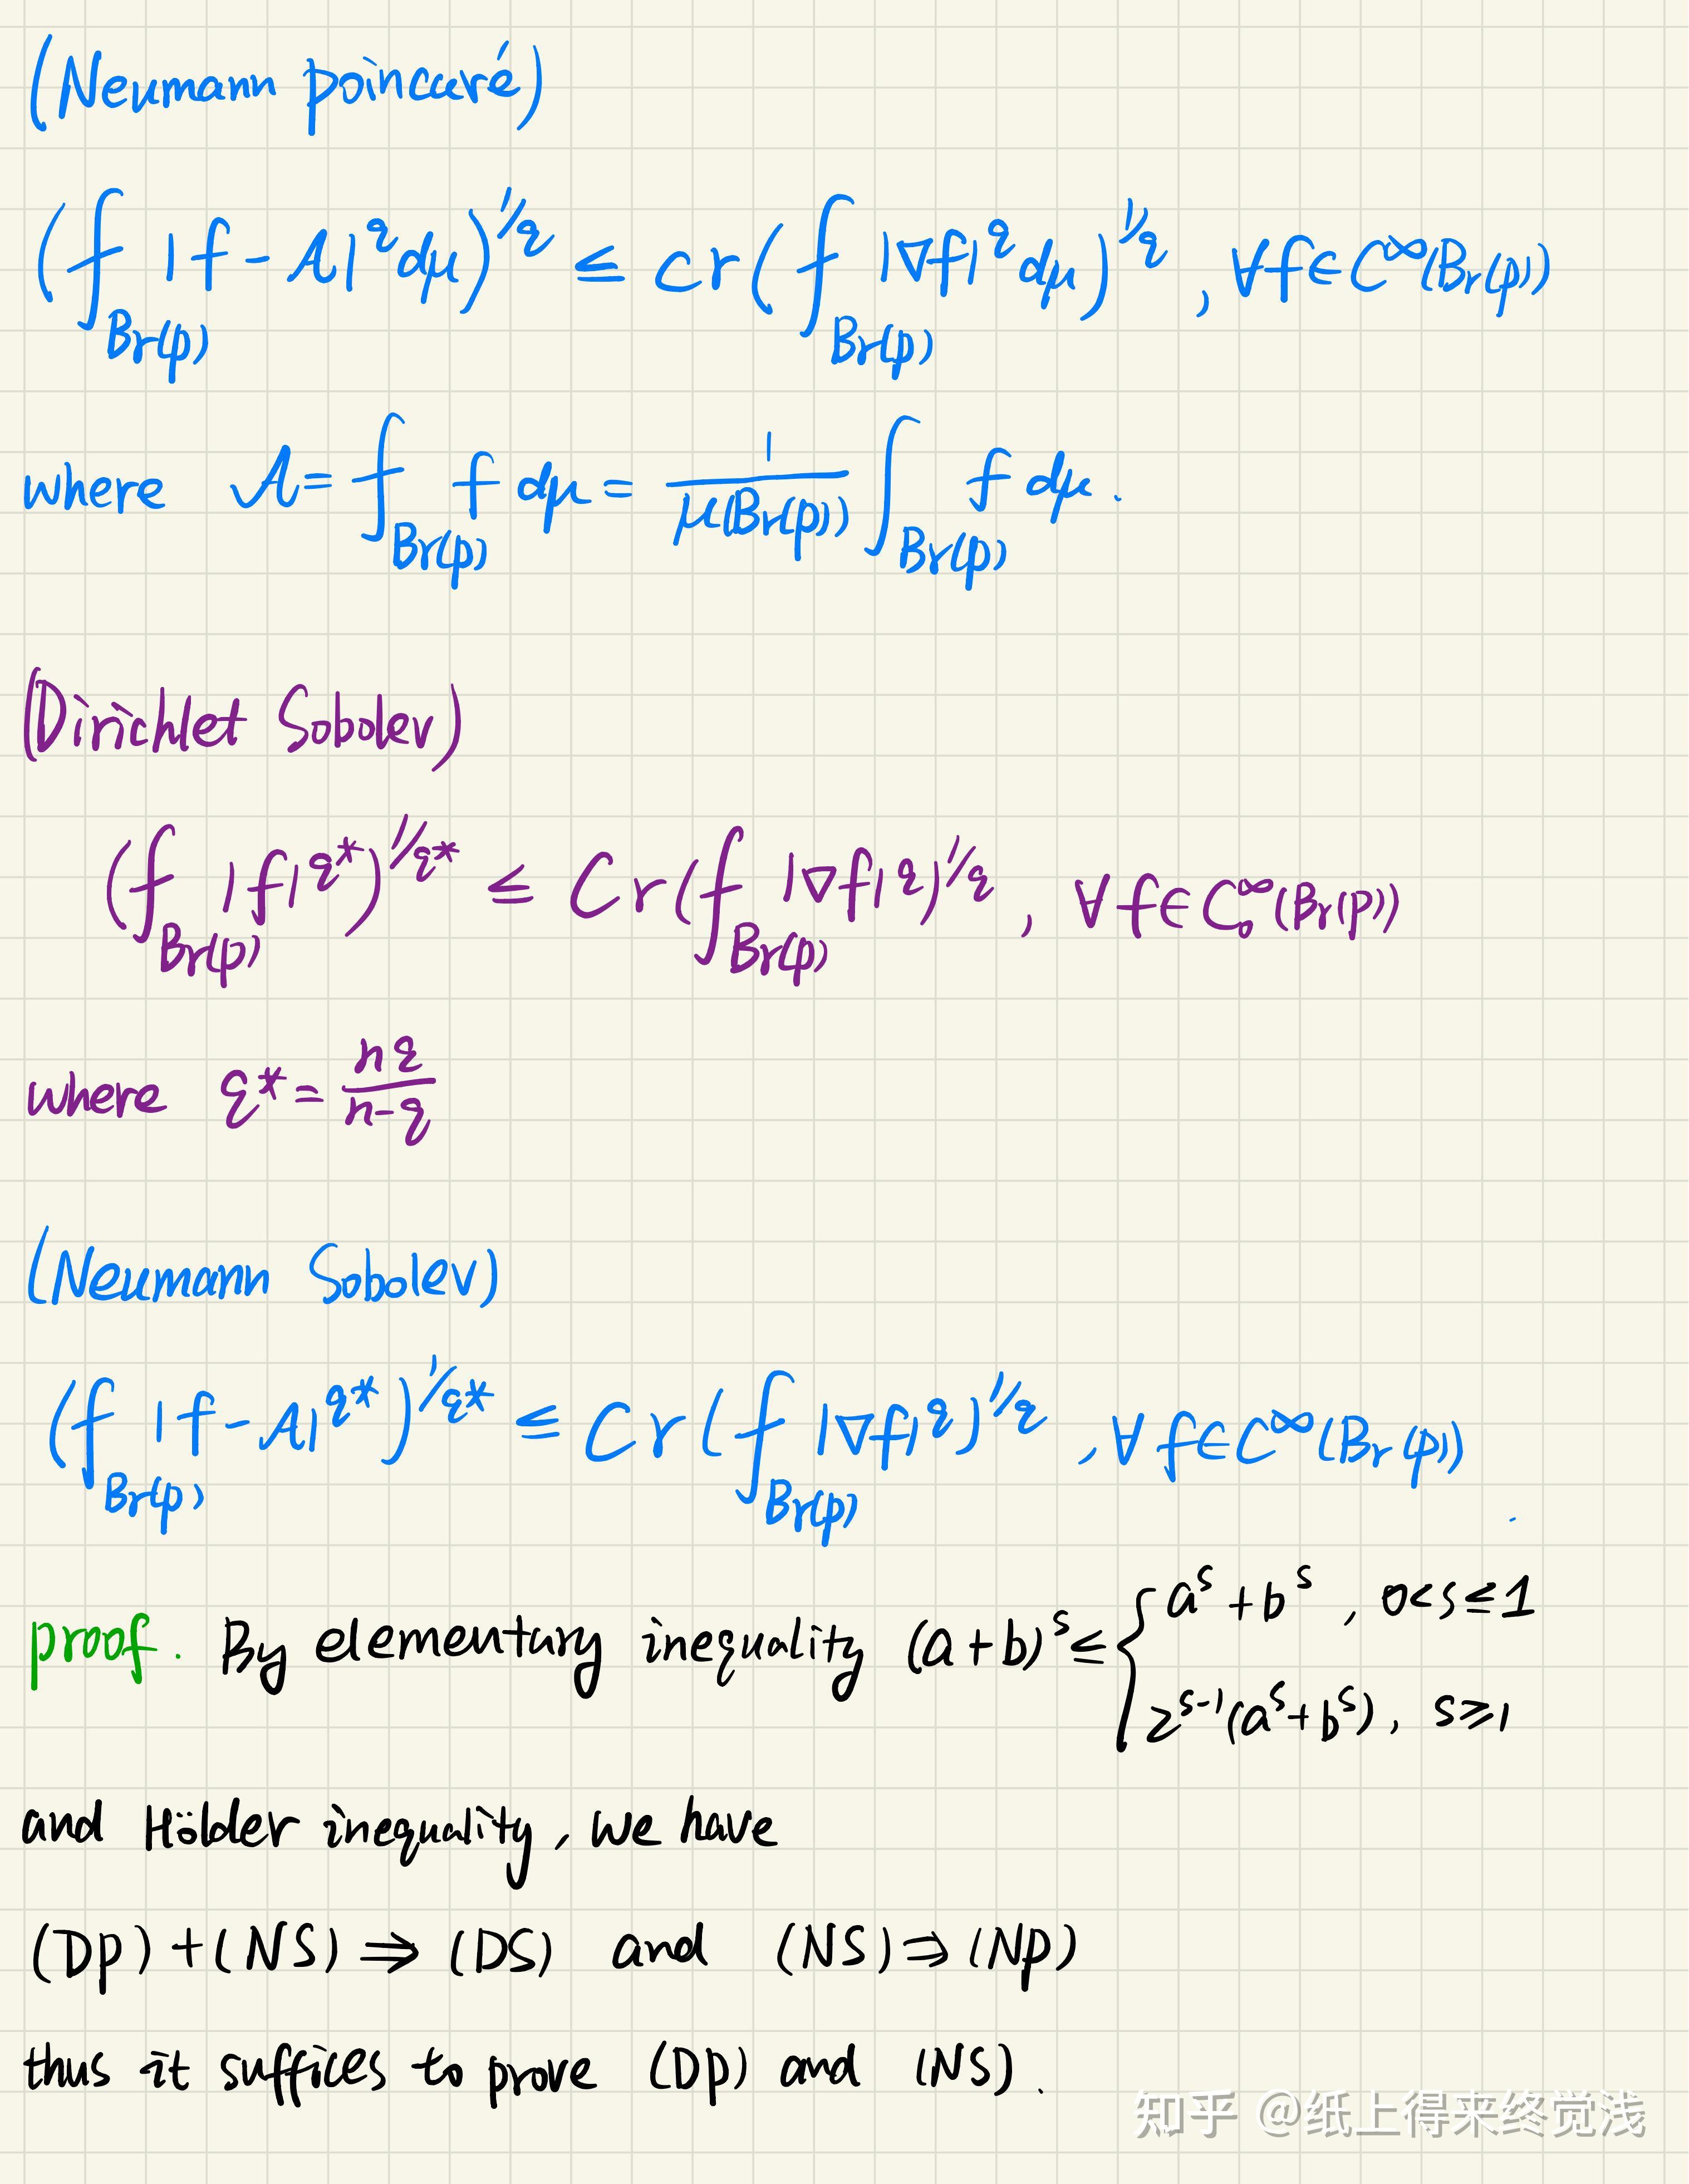 (Neumann poincaré)
(⨍_{Br(p)} |f - A|^q dμ)^{1/q} ≤ cr(⨍_{Br(p)} |∇f|^q dμ)^{1/q}, ∀f∈C^∞(Br(p))
where A = ⨍_{Br(p)} f dμ = \frac{1}{μ(Br(p))} ∫_{Br(p)} f dμ.
(Dirichlet Sobolev)
(⨍_{Br(p)} |f|^{q*})^{1/q*} ≤ Cr(⨍_{Br(p)} |∇f|^q)^{1/q}, ∀f∈C_0^∞(Br(p))
where q* = \frac{nq}{n-q}
(Neumann Sobolev)
(⨍_{Br(p)} |f - A|^{q*})^{1/q*} ≤ Cr(⨍_{Br(p)} |∇f|^q)^{1/q}, ∀f∈C^∞(Br(p)).
proof. By elementary inequality (a+b)^s ≤ { a^s + b^s, 0<s≤1
2^{s-1}(a^s+b^s), s≥1
and Hölder inequality, we have
(Dp)+(NS)⇒(DS) and (NS)⇒(Np)
thus it suffices to prove (Dp) and (NS).
知乎 @纸上得来终觉浅